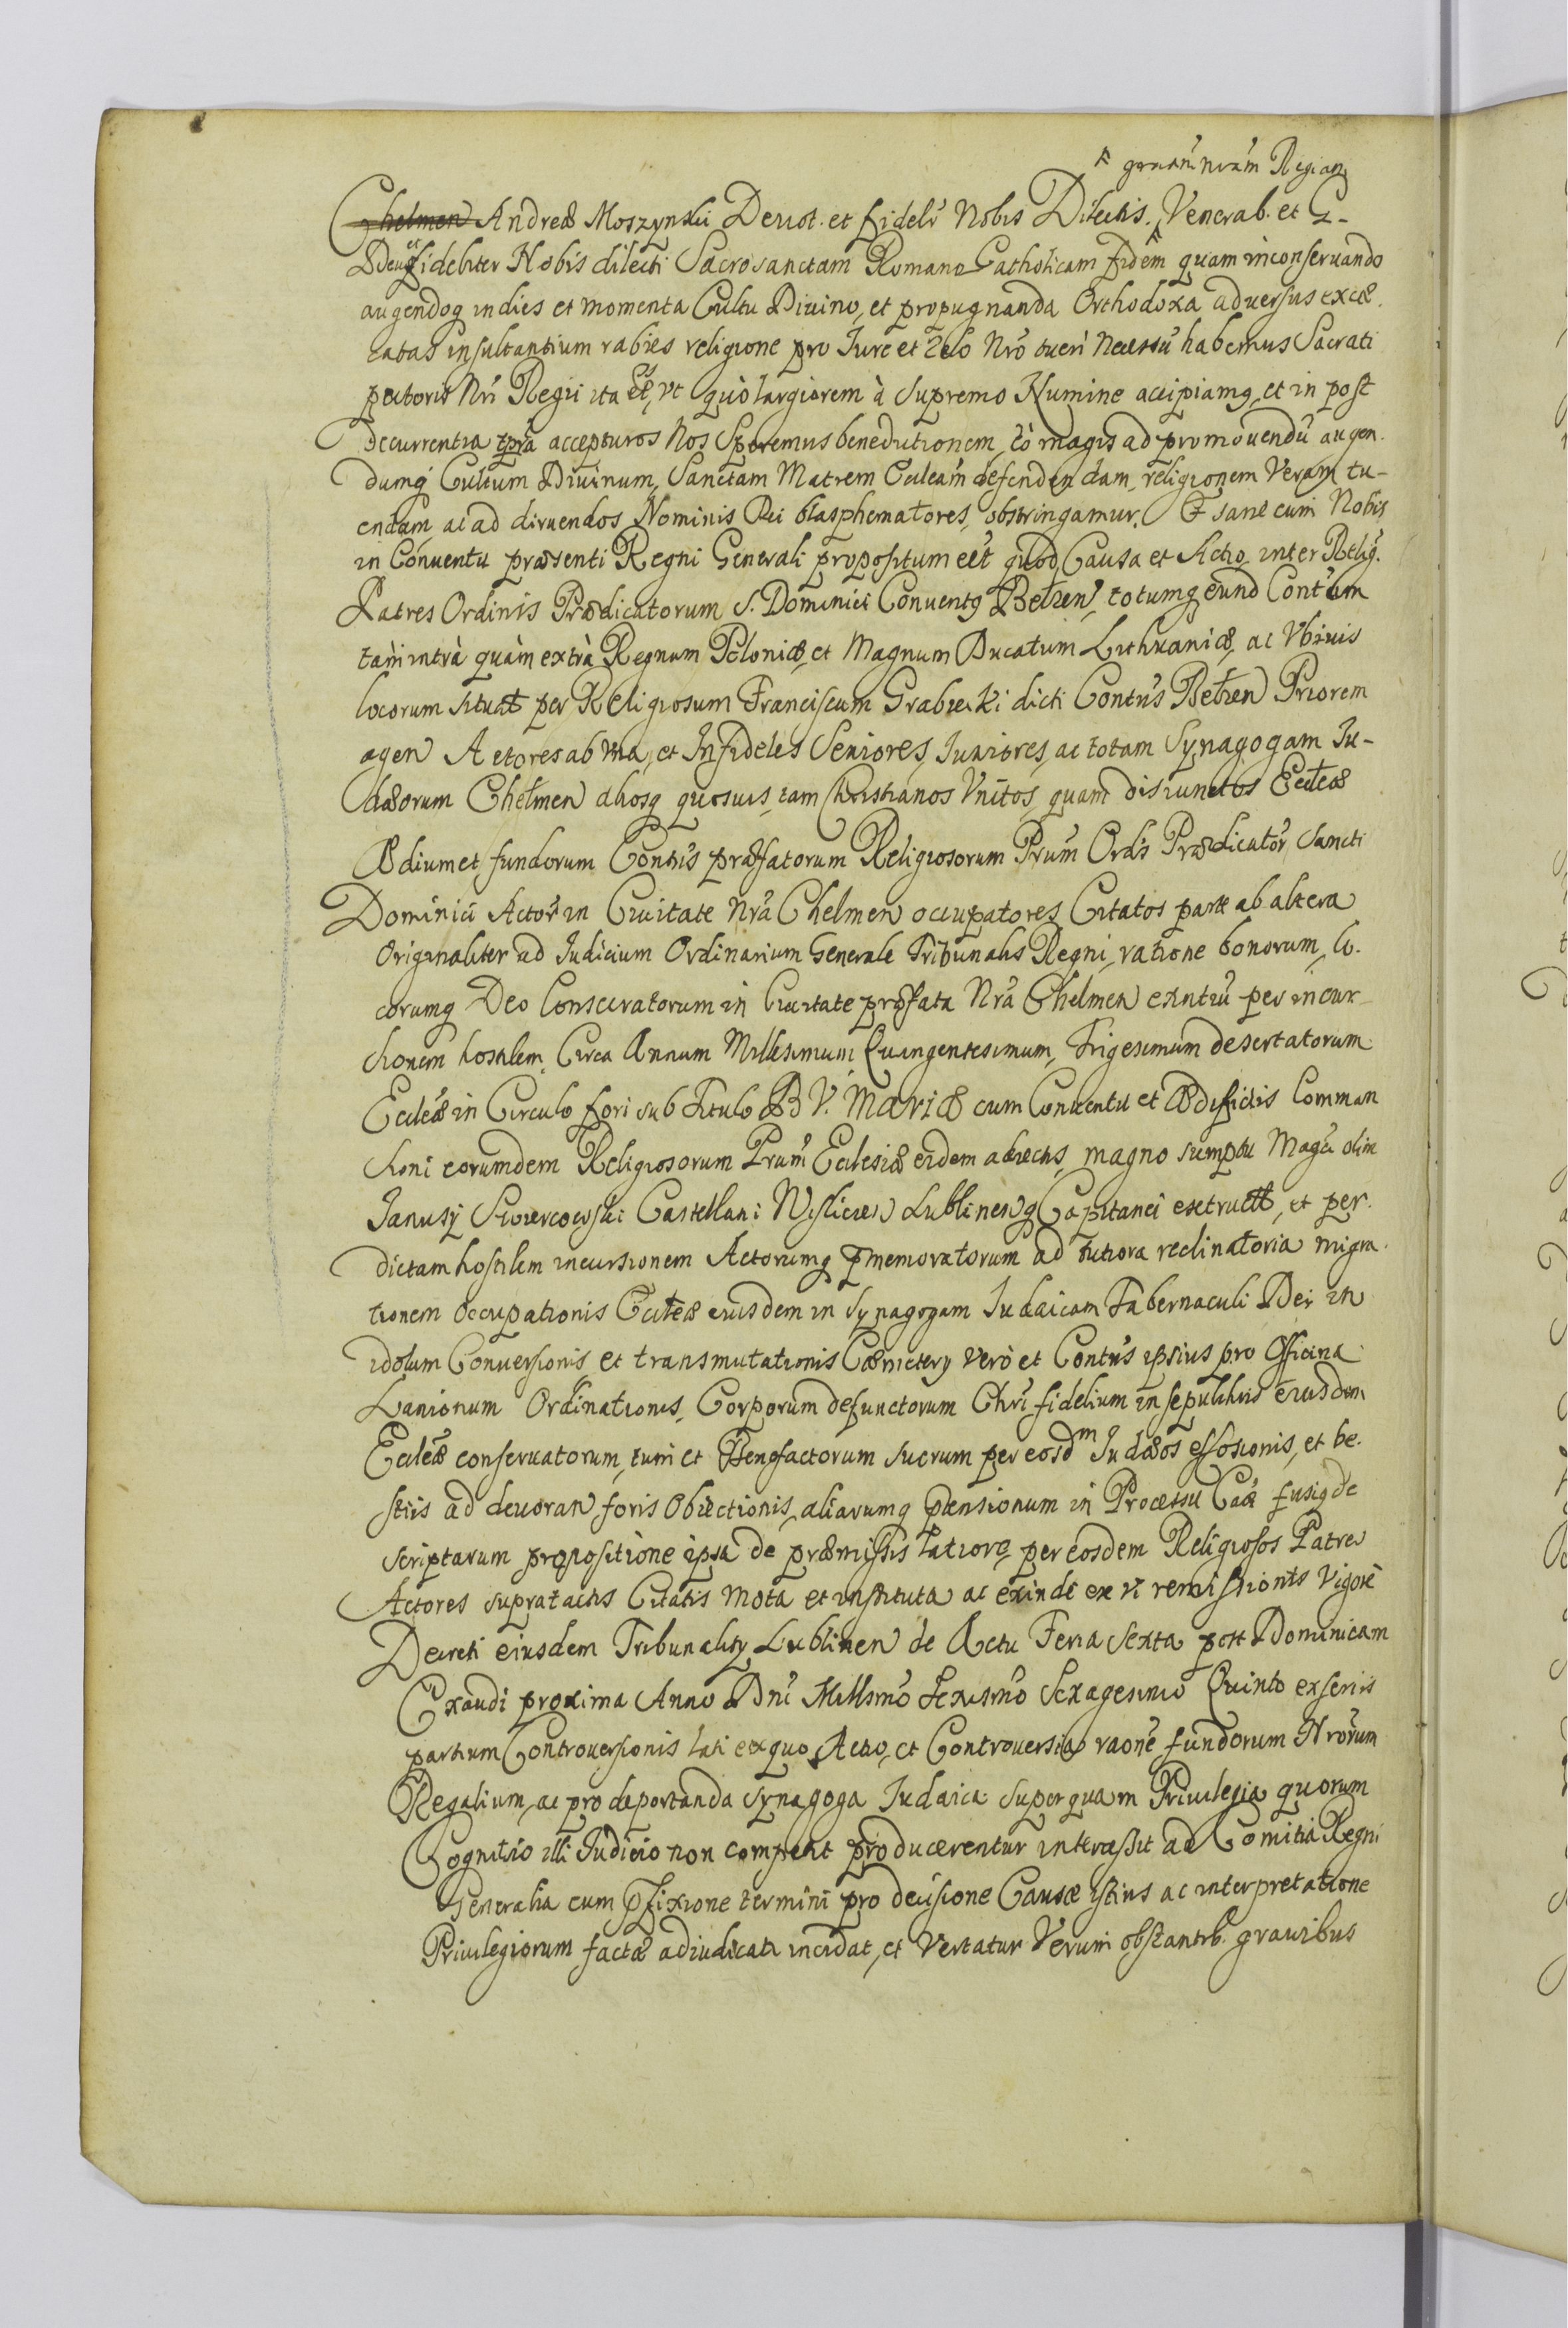 gratiam nram Regiam
Chelmen Andreæ Moszynski Deuot. et fidelr̃ Nobis Dilectis. Venerab. et G-
Deuõ et fideliter Nobis dilecti Sacrosanctam Romano Catholicam fidem quam in conseruando
augendoq in dies et momenta Cultu Diuino, et propugnanda Orthodoxa aduersus excæ-
catas insultantium rabies religione pro Iure et Zelo Nrõ tueri Necessũ habemus Sacrati
pectoris Nri Regii ita est, vt quò largiorem à Supremo Numine accipiamq, et in post
Decurrentia tpra accepturos Nos Speremus benedictionem, eò magis ad promouendũ augen-
dumq Cultum Diuinum, Sanctam Matrem Eccleam defendendam, religionem Veram tu-
endam, ac ad diruendos Nominis Dei blasphematores, obstringamur. Et sane cum Nobis
in Conuentu præsenti Regni Generali propositum eēt quod Causa et Actio inter Relig.
Patres Ordinis Prædicatorum S. Dominici Conuentq Belzen, totumq eund Contum
tam intrà quàm extrà Regnum Poloniæ, et Magnum Ducatum Lithuaniæ, ac Vbiuis
locorum situat per Religiosum Franciscum Grabiecki dicti Contũs Belzen Priorem
agen Actores ab vna, et Infideles Seniores, Iuniores, ac totam Synagogam Iu-
dæorum Chelmen aliosq quosuis, tam Christianos Vnitos, quam disiunctos Eccleæ
Ædium et fundorum Contũs præfatorum Religiosorum Prum Ordis Prædicator, Sancti
Dominici Actor in Ciuitate Nrã Chelmen occupatores Citatos parte ab altera
Originaliter ad Iudicium Ordinarium Generale Tribunalis Regni, ratione bonorum, lo-
corumq Deo Consecratorum in Ciuitate præfata Nrã Chelmen exntiũ per incur-
sionem hostilem, Circa Annum Millesimum Quingentesimum, Trigesimum desertatorum
Eccleæ in Circulo fori sub Titulo B V. Mariæ cum Conuentu et Ædificiis Comman
sioni eorumdem Religiosorum Prum Ecclesiæ eidem adiectis, magno sumptu Magci olim
Ianusy Swiercowski Castellani Wislicien Lublinenq Capitanei exstructæ, et per
dictam hostilem incursionem Actorumq pmemoratorum ad tutiora reclinatoria migra-
tionem occupationis Eccleæ eiusdem in Synagogam Iudaicam Tabernaculi Dei in
idolum Conuersionis et transmutationis Cæmetery verò et Contũs ipsius pro Officina
Lanionum Ordinationis, Corporum defunctorum Chrĩ fidelium in sepulchris eiusdem
Eccleæ conseruatorum, tum et Benefactorum suorum per eosdm Iudæos effosionis, et be-
stiis ad deuoran foris Obiectionis, aliarumq ptensionum in Processu Caæ fusiq de
scriptarum propositione ipsa de præmissis latiore, per eosdem Religiosos Patres
Actores supratactis Citatis mota et instituta ac exinde ex vi remissionis Vigore
Decreti eiusdem Tribunalis Lublinen de Actu Feria Sexta post Dominicam
Exaudi proxima Anno Dni Millsmõ Sexcsmõ Sexagesimo Quinto ex seriis
partium Controuersionis lati ex quo, Actio, et Controuersia raone fundorum Nrorum
Regalium, ac pro deportanda synagoga Iudaica super quam Priuilegia quorum
Cognitio illi Iudicio non competit producerentur intercessit ad Comitia Regni
Generalia cum pfixione termini pro decisione Causæ istius ac interpretatione
Priuilegiorum factæ adiudicati incidat, et Vertatur Verum obstantib. grauibus